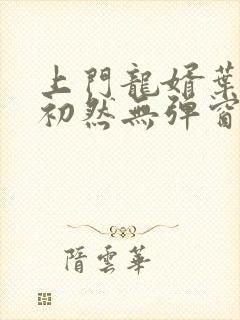 上門龍婿葉
初然無彈窗
隋雲華